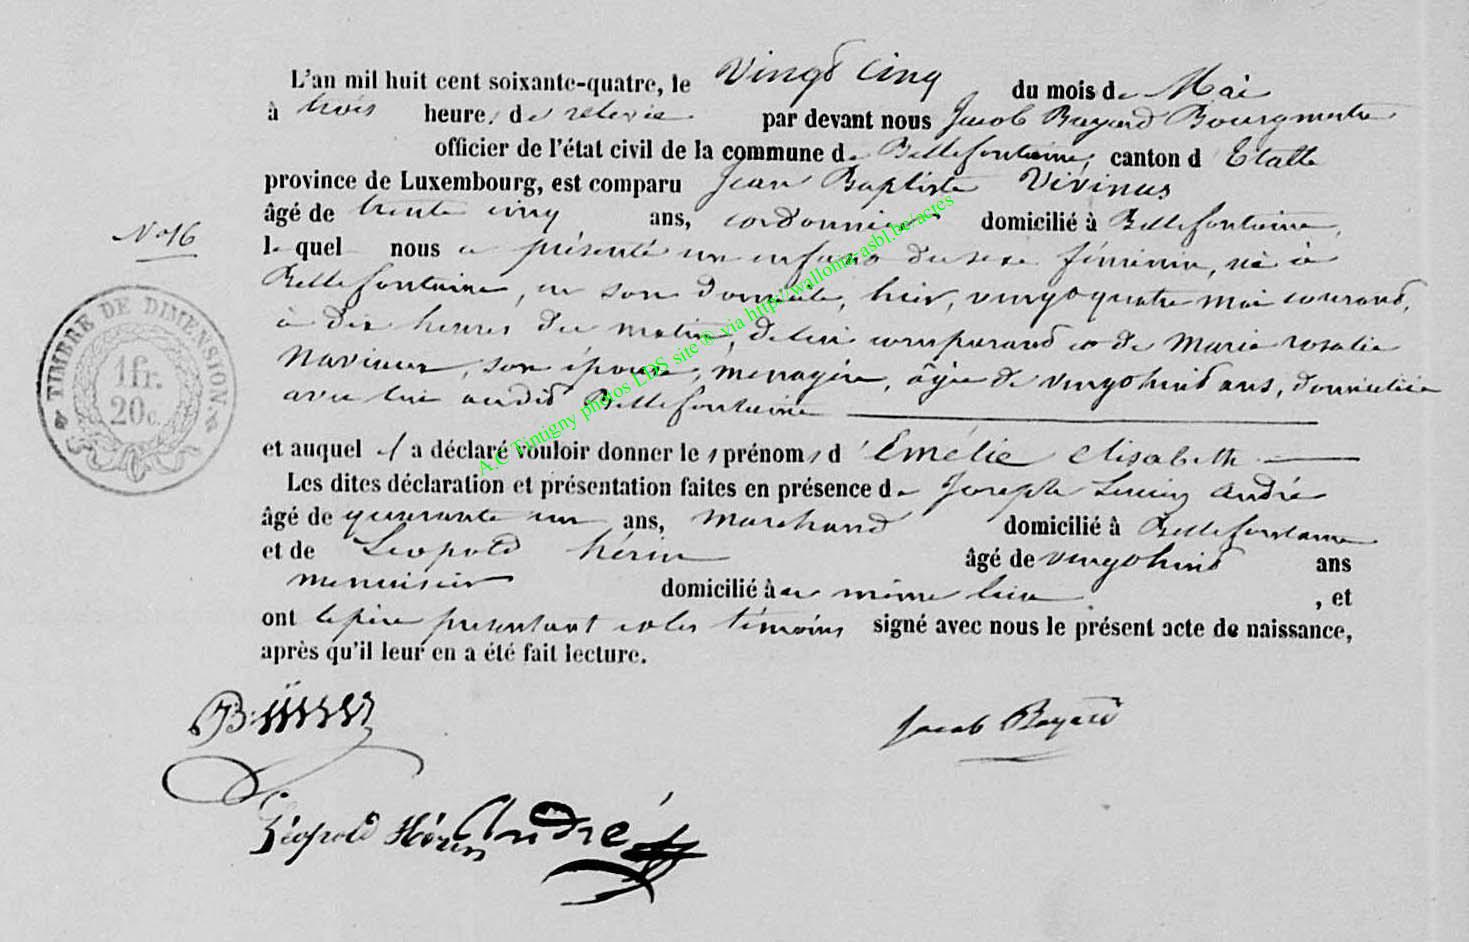 L'an mil huit cent soixante-quatre, le Vingt cinq du mois de Mai
à trois heures de relevée par devant nous Jacob Bayard Bourgmestre
officier de l'état civil de la commune de Bellefontaine, canton d'Etalle
province de Luxembourg, est comparu Jean Baptiste Vivinus
âgé de trente cinq ans, cordonnier domicilié à Bellefontaine,
N° 16
lequel nous a présenté un enfant du sexe féminin, né à
Bellefontaine, en son domicile, hier, vingt quatre mai courant,
à dix heures du matin, de lui comparant et de Marie rosalie
son épouse, menagère, âgée de vingt huit ans, domiciliée
avec lui audit Bellefontaine
et auquel il a déclaré vouloir donner les prénoms d'Emélie elisabeth
Les dites déclaration et présentation faites en présence de Joseph Lucien andré
âgé de quarante un ans, marchand domicilié à Bellefontaine
et de Léopold hérin âgé de vingt huit ans
menuisier domicilié à au même lieu, et
ont le père présentant et les témoins signé avec nous le présent acte de naissance,
après qu'il leur en a été fait lecture.
TIMBRE DE DIMENSION
1 fr.
20 c.
A.C Tintigny photos LDS site © via http://wallonia-asbl.be/actes
Jacob Bayard
Léopold Hérin André